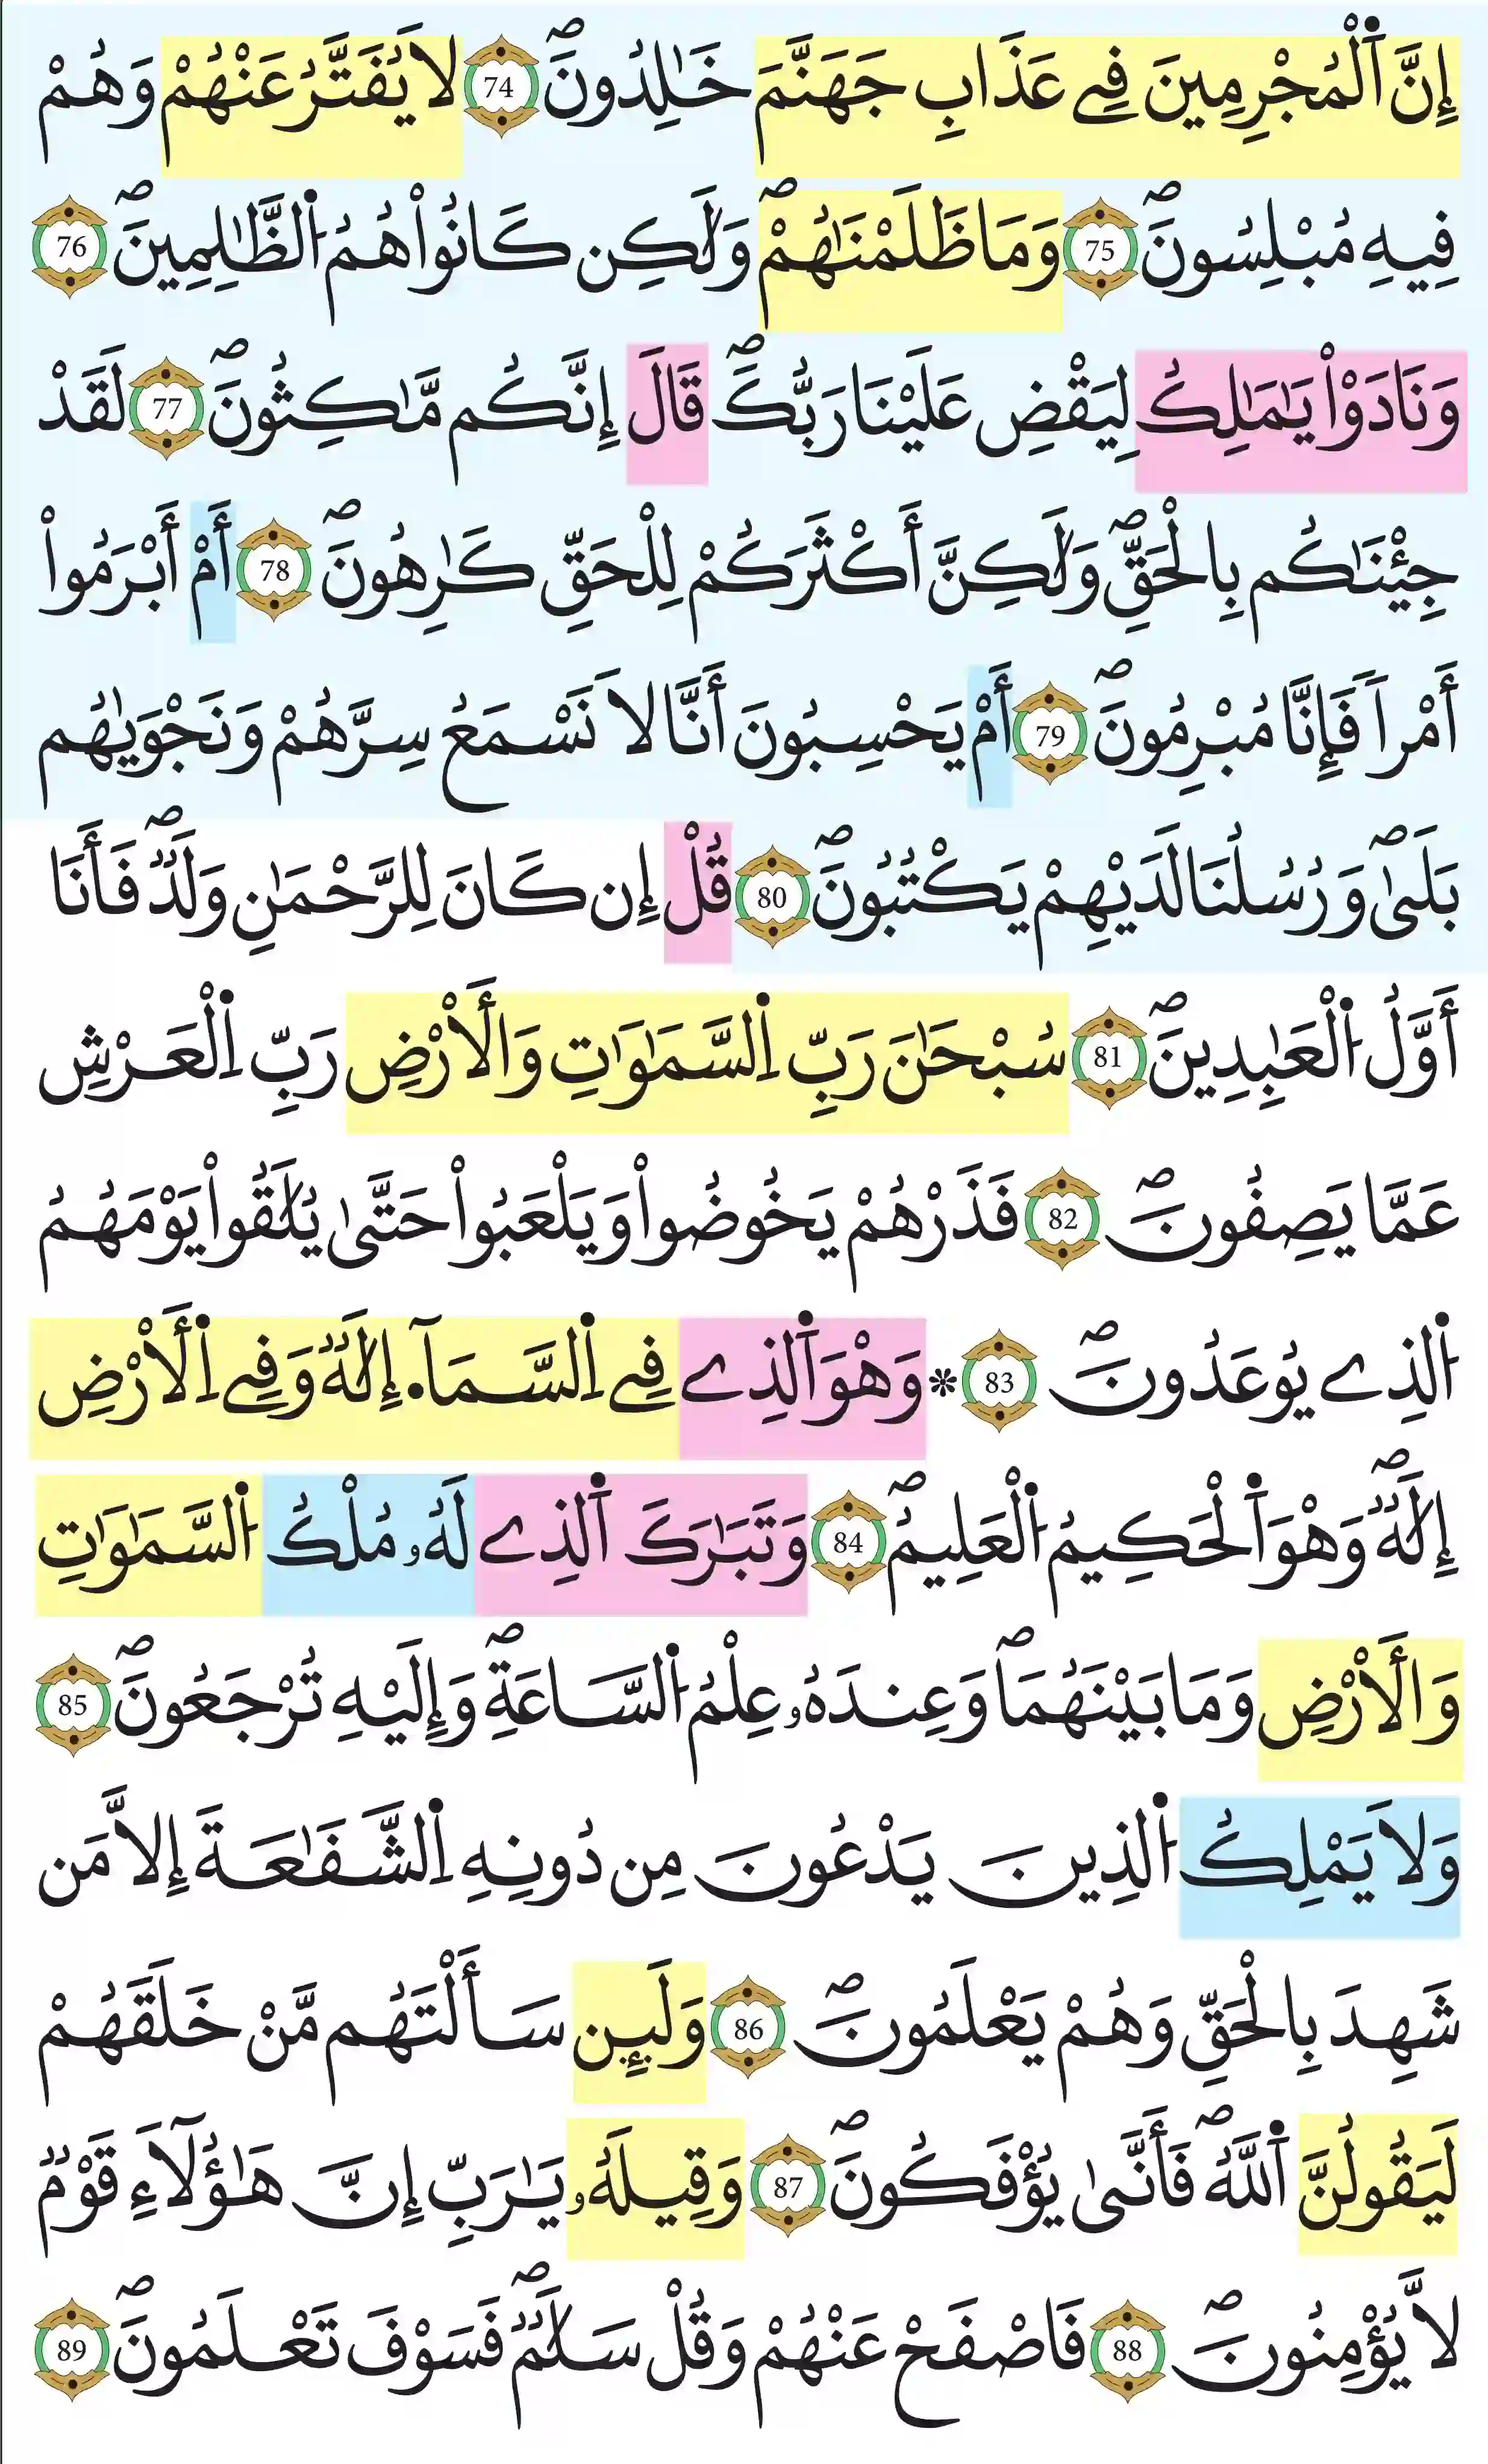 إِنَّ اَ۬لْمُجْرِمِينَ فِے عَذَابِ جَهَنَّمَ خَٰلِدُونَۖ 74 لَا يُفَتَّرُ عَنْهُمْ وَهُمْ
فِيهِ مُبْلِسُونَۖ 75 وَمَا ظَلَمْنَٰهُمْۖ وَلَٰكِن كَانُواْ هُمُ اُ۬لظَّٰلِمِينَۖ 76
وَنَادَوْاْ يَٰمَٰلِكُ لِيَقْضِ عَلَيْنَا رَبُّكَۖ قَالَ إِنَّكُم مَّٰكِثُونَۖ 77 لَقَدْ
جِئْنَٰكُم بِالْحَقِّۖ وَلَٰكِنَّ أَكْثَرَكُمْ لِلْحَقِّ كَٰرِهُونَۖ 78 أَمْ أَبْرَمُواْ
أَمْراٗ فَإِنَّا مُبْرِمُونَۖ 79 أَمْ يَحْسِبُونَ أَنَّا لَا نَسْمَعُ سِرَّهُمْ وَنَجْوَيٰهُم
بَلَىٰۖ وَرُسُلُنَا لَدَيْهِمْ يَكْتُبُونَۖ 80 قُلْ إِن كَانَ لِلرَّحْمَٰنِ وَلَدٞۖ فَأَنَا
أَوَّلُ اُ۬لْعَٰبِدِينَۖ 81 سُبْحَٰنَ رَبِّ اِ۬لسَّمَٰوَٰتِ وَالَارْضِ رَبِّ اِ۬لْعَرْشِ
عَمَّا يَصِفُونَۖ 82 فَذَرْهُمْ يَخُوضُواْ وَيَلْعَبُواْ حَتَّىٰ يُلَٰقُواْ يَوْمَهُمُ
اُ۬لذِے يُوعَدُونَۖ 83 * وَهْوَ اَ۬لذِے فِے اِ۬لسَّمَآءِ اِلَٰهٞ وَفِے اِ۬لَارْضِ
إِلَٰهٞۖ وَهْوَ اَ۬لْحَكِيمُ اُ۬لْعَلِيمُۖ 84 وَتَبَٰرَكَ اَ۬لذِے لَهُۥ مُلْكُ اُ۬لسَّمَٰوَٰتِ
وَالَارْضِ وَمَا بَيْنَهُمَاۖ وَعِندَهُۥ عِلْمُ اُ۬لسَّاعَةِۖ وَإِلَيْهِ تُرْجَعُونَۖ 85
وَلَا يَمْلِكُ اُ۬لذِينَ يَدْعُونَ مِن دُونِهِ اِ۬لشَّفَٰعَةَ إِلَّا مَن
شَهِدَ بِالْحَقِّ وَهُمْ يَعْلَمُونَۖ 86 وَلَئِن سَأَلْتَهُم مَّنْ خَلَقَهُمْ
لَيَقُولُنَّ اَ۬للَّهُۖ فَأَنَّىٰ يُؤْفَكُونَۖ 87 وَقِيلَهُۥ يَٰرَبِّ إِنَّ هَٰؤُلَآءِ قَوْمٞ
لَّا يُؤْمِنُونَۖ 88 فَاصْفَحْ عَنْهُمْ وَقُلْ سَلَٰمٞۖ فَسَوْفَ تَعْلَمُونَۖ 89